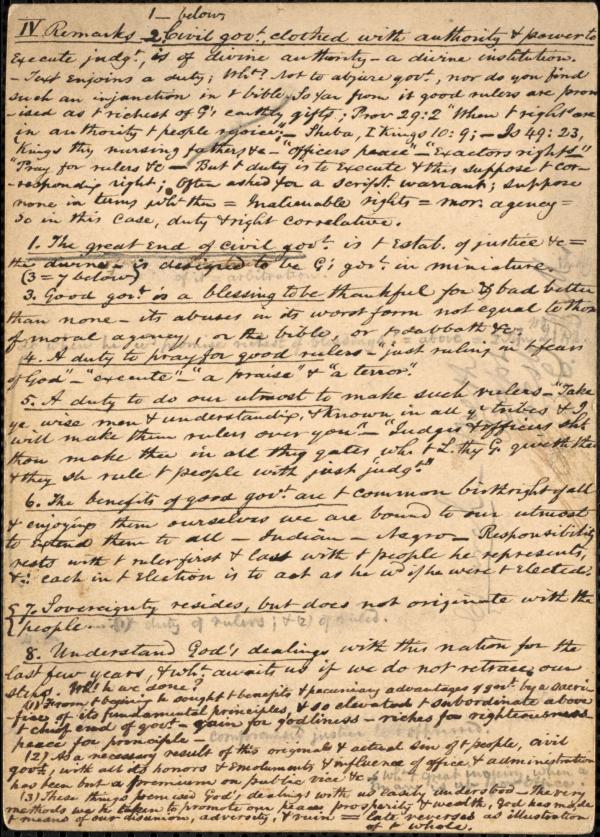 1 – below
IV Remarks – 2. Civil govt., clothed with authority & power to
execute judgt., is of divine authority – a divine institution.
– Text enjoins a duty; Wht? Not to abjure govt., nor do you find
such an injunction in t bible. So far from it good rulers are prom
-ised as t richest of G's earthly gifts; Prov 29:2 "When t right are
in authority t people rejoice"; – Sheba, I Kings 10:9; – Is 49:23,
"Kings thy nursing fathers &c – "Officers peace" – "Exactors rights"
"Pray for rulers &c – But t duty is to Execute & this suppose t cor-
-respondg right; Often asked for a script. warrant; suppose
none in terms wht then = Inalienable rights = mor. agency =
So in this case, duty & right correlative.
1. The great End of Civil govt. is t Estab. of justice &c =
the divine – is designed to be G's govt. in miniature.
(3 = 7 below)
3. Good govt. is a blessing to be thankful for & bad better
than none – its abuses in its worst form not equal to those
of moral agency, or the bible, or t sabbath &c.
4. A duty to pray for good rulers – "just ruling in t fear
of God" – "execute" – "a praise" & "a terror".
5. A duty to do our utmost to make such rulers – "Take
ye wise men & understandg, & known in all yr tribes & I
will make them rulers over you" – "Judges & officers shlt
thou make thee in all thy gates wh. t L. thy G. giveth thee
& they sh rule t people with just judgt."
6. The benefits of good govt. are t common birthright of all
& enjoying them ourselves we are bound to our utmost
to extend them to all – Indian – Negro – Responsibility
rests with t ruler first & last with t people he represents,
& each in t Election is to act as he wd if he were t Elected.
7. Sovereignty resides, but does not originate with the
people. – (1) duty of rulers; & 2) of ruled.
8. Understand God's dealings with this nation for the
last few years, & wht awaits us if we do not retrace our
steps. Wht h we done?
(1) From t beging h sought t benefits & pecuniary advantages of govt. by a sacri-
fice of its fundamental principles, & so elevated t subordinate above
t chief end of govt – gain for godliness – riches for righteousness
peace for principle –
(2) As a necessary result of this original & actual sin of t people, civil
govt., with all its honors & emoluments & influence of office & administration
has been but a premium on public vice &c.
(3) These things premised God's dealings with us easily understood – The very
methods we h taken to promote our peace prosperity & wealth, God has made
t means of our disunion, adversity, & ruin = late reverses as illustration
of t whole.